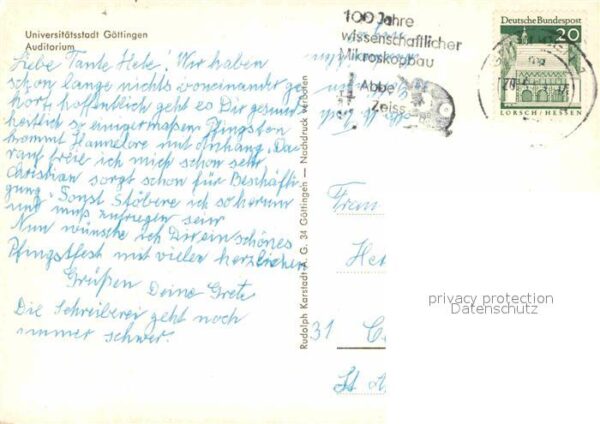 Universitätsstadt Göttingen
Auditorium
Liebe Tante Hete! Wir haben
schon lange nichts voneinander ge
hört, hoffentlich geht es Dir gesund
heitlich so einigermaßen. Pfingsten
kommt Hannelore mit Anhang. Da
rauf freie ich mich schon sehr.
Christian sorgt schon für Beschäfti
gung. Sonst stöbere ich so herum
und muß zufrieden sein
Nun wünsche ich Dir ein schönes
Pfingstfest mit vielen herzlichen
Grüßen Deine Grete
Die Schreiberei geht noch
immer schwer.
Rudolph Karstadt A. G. 34 Göttingen — Nachdruck verboten
100 Jahre
wissenschaftlicher
Mikroskopbau
Abbe
Zeiss
Deutsche Bundespost
20
LORSCH/HESSEN
Frau
He
31 C
St A
privacy protection
Datenschutz